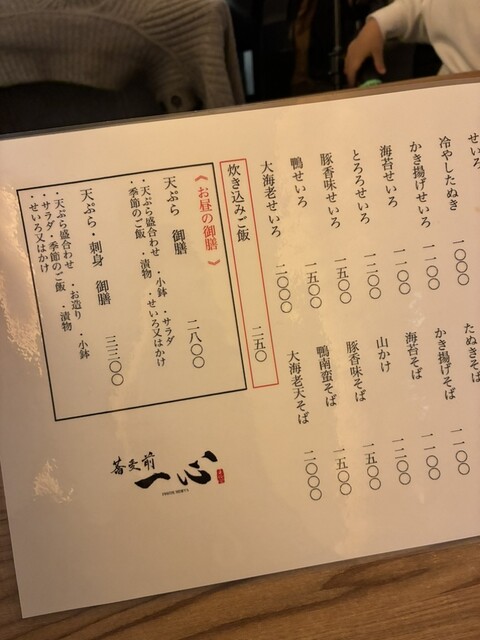 せいろ
冷やしたぬき 一〇〇〇
かき揚げせいろ 一一〇〇
海苔せいろ 一一〇〇
とろろせいろ 一二〇〇
豚香味せいろ 一五〇〇
鴨せいろ 一五〇〇
大海老せいろ 二〇〇〇
たぬきそば
かき揚げそば 一一〇〇
海苔そば 一一〇〇
山かけ 一二〇〇
豚香味そば 一五〇〇
鴨南蛮そば 一五〇〇
大海老天そば 二〇〇〇
炊き込みご飯 二五〇
《お昼の御膳》
天ぷら 御膳 二八〇〇
・天ぷら盛合わせ ・小鉢 ・サラダ
・季節のご飯 ・漬物 ・せいろ又はかけ
天ぷら・刺身 御膳 三三〇〇
・天ぷら盛合わせ ・お造り ・小鉢
・サラダ ・季節のご飯 ・漬物
・せいろ又はかけ
蕎麦前
一心